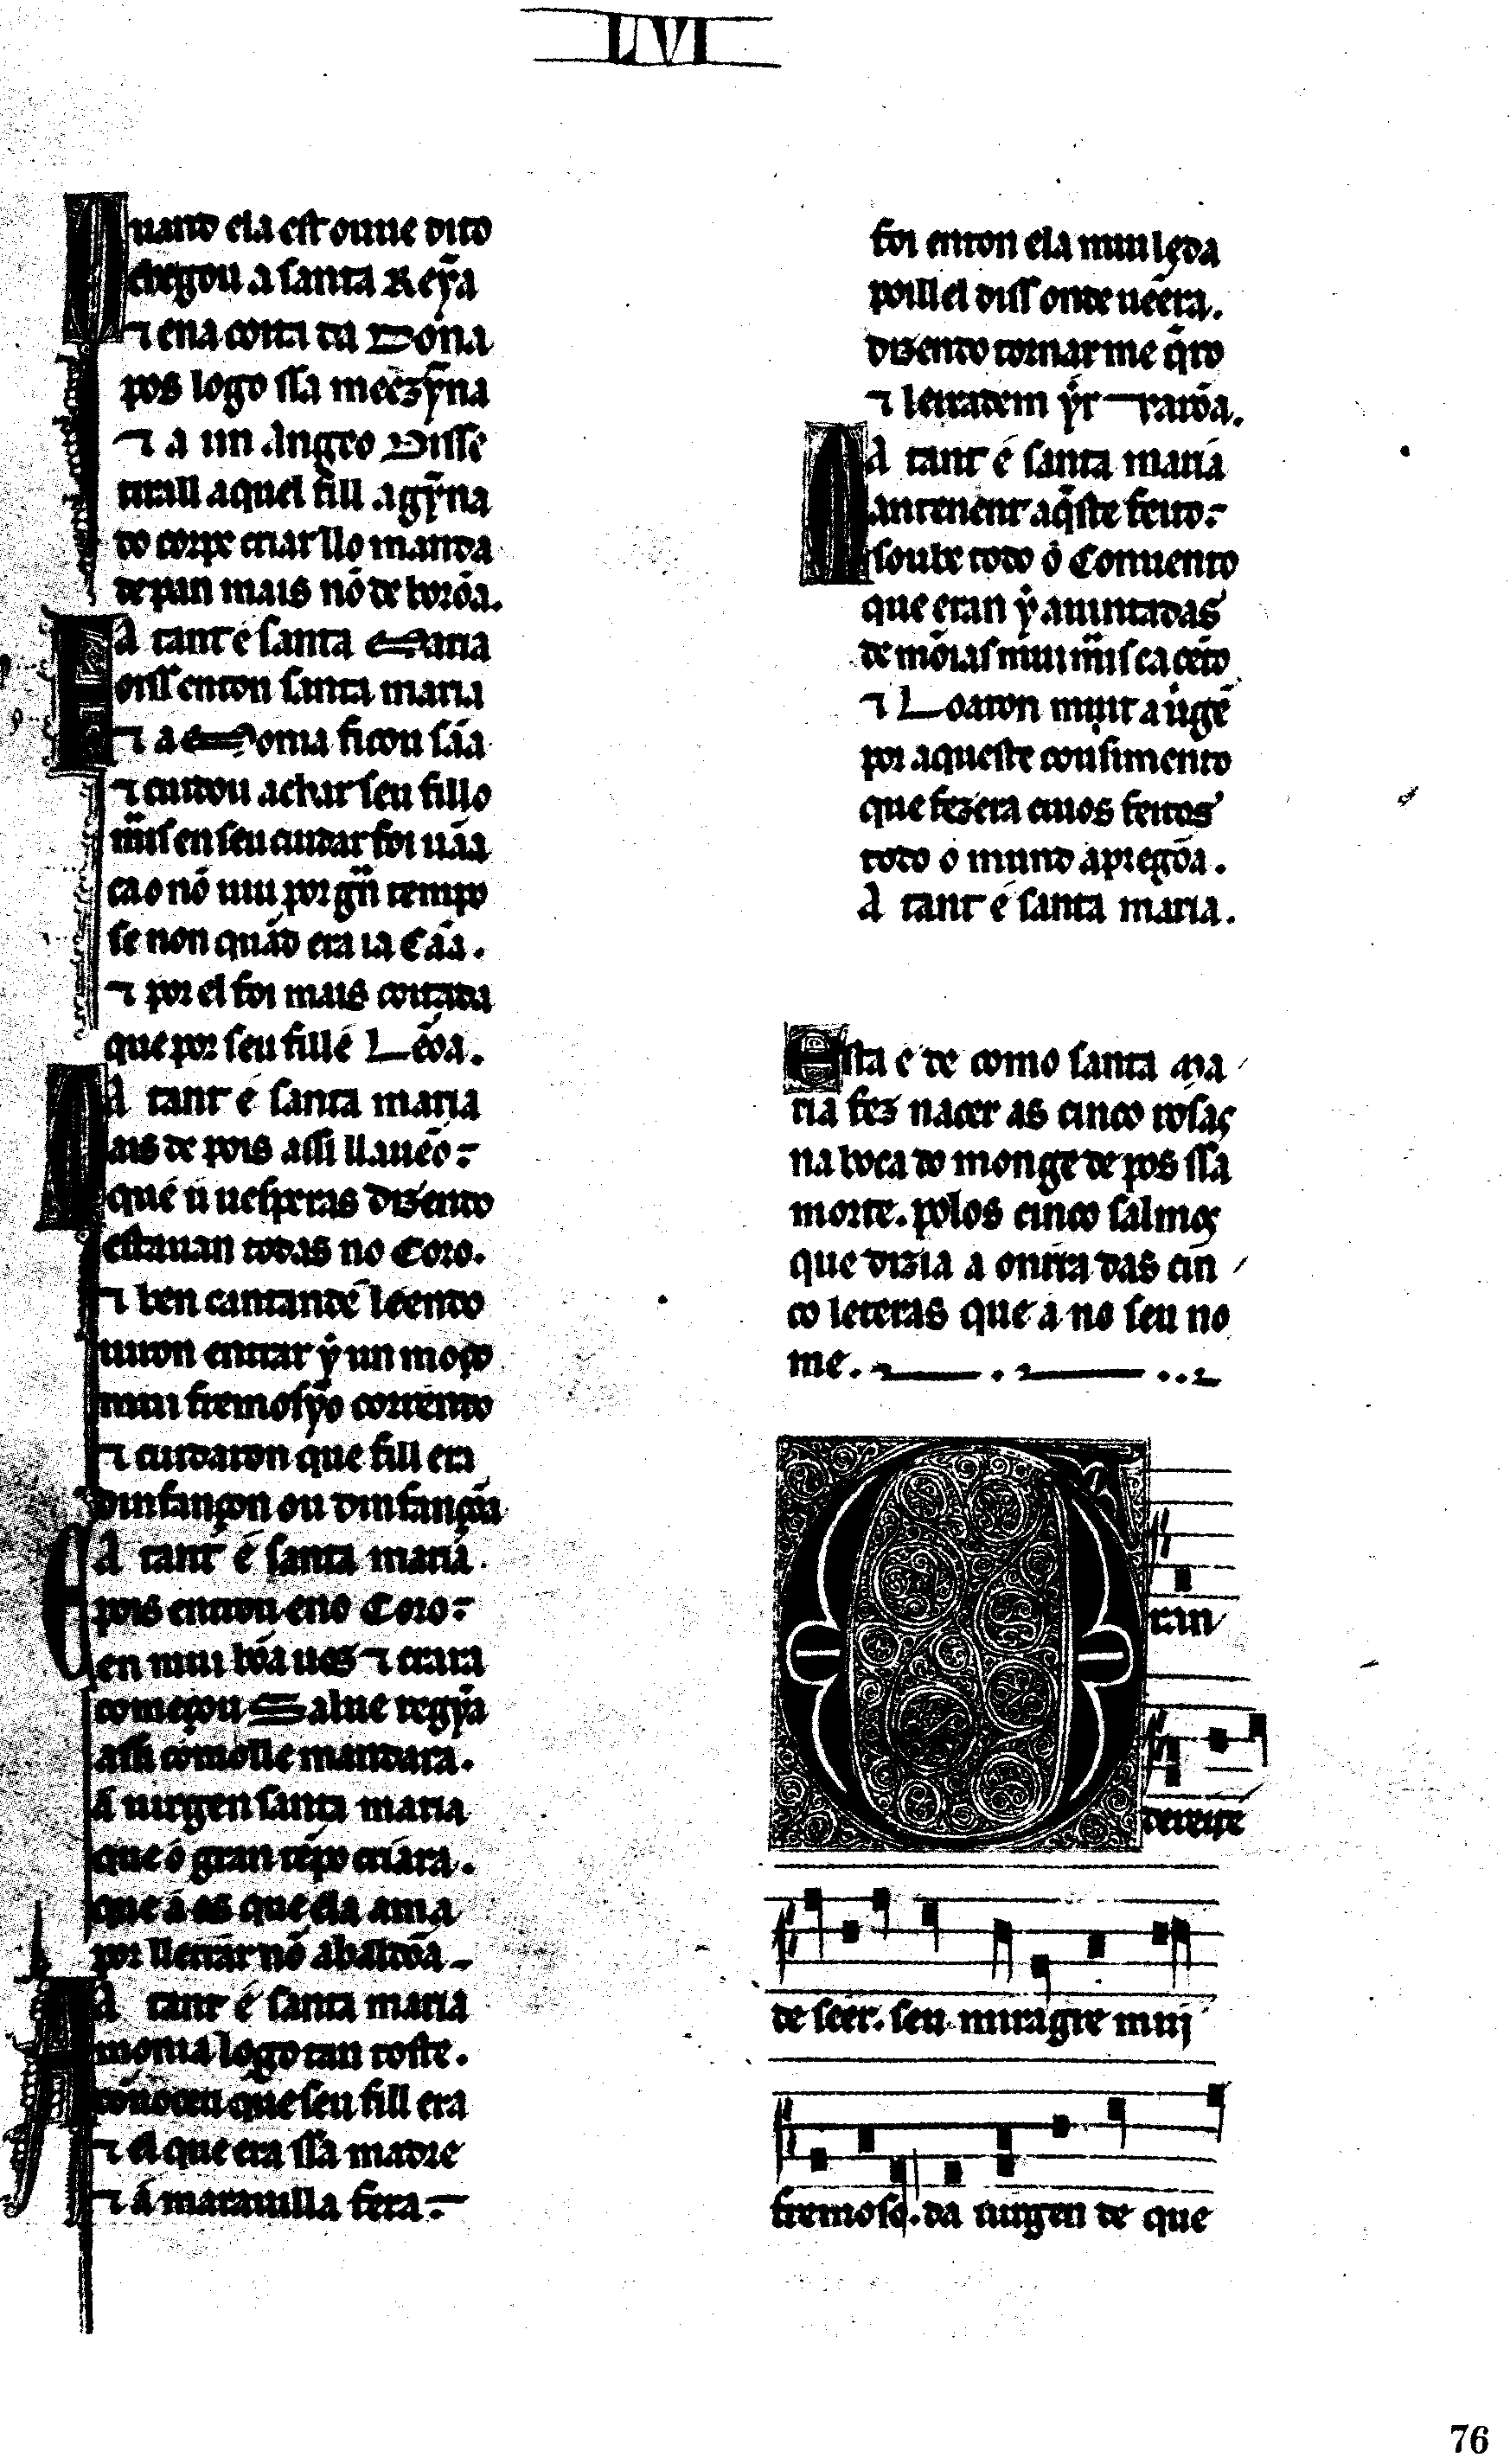 LVI
Quand ela est ouue dito
chegou a santa Reỹa
⁊ ena coita da Dona
pos logo ssa meezỹna
⁊ a un Angeo Disse
tirall aquel fill agỹna
do corpe criar llo manda
de pan mais nõ de borõa.
A tant é santa Maria
Foiss enton santa maria
⁊ a Monia ficou sãa
⁊ cuidou achar seu fillo
mais en seu cuidar foi uãa
ca o nõ uiu por gñ tempo
se non quãd era ia Cãa.
⁊ por el foi mais coitada
que por seu fill é Leõa.
A tant é santa maria
Mais de pois assi ll aueo
que ú uesperas dizendo
estauan todas no Coro.
⁊ ben cantand e leendo
uiron entrar ý un moço
mui fremosỹo correndo
⁊ cuidaron que fill era
dinfançon ou dinfançõa
A tant é santa maria
E pois entrou eno Coro
en mui bõa uos ⁊ crara
começou Salue regỹa
assi como lle mandara.
a uirgen santa maria
que o gran tẽpo criára.
que a os que ela ama
por lle errar nõ abaldõa
A tant é santa maria
A monia logo tan toste.
connoceu que seu fill era
⁊ el que era ssa madre
⁊ a marauilla fera
foi enton ela mui leda
poill el diss onde uẽera.
dizendo tornar me q̃ro
⁊ leixadem ýr ⁊ razõa.
A tant é santa maria
Mantenent aq̃ste feito
soube todo o Conuento
que eran ý aiuntadas
de mõias mui mais ca cẽto
⁊ Loaron muit a uirgẽ
por aqueste cousimento
que fezera e nos feitos
todo o mund apregõa.
A tant é santa maria.
Esta e de como santa Ma
ria fez nacer as cinco rósas
na boca do monge de pos ssa
morte. polos cinco salmos
que dizia a onrra das cin
co leteras que á no seu no
me.
Gran
dereite
de seer. seu miragre mui
fremoso. da uirgen de que
76